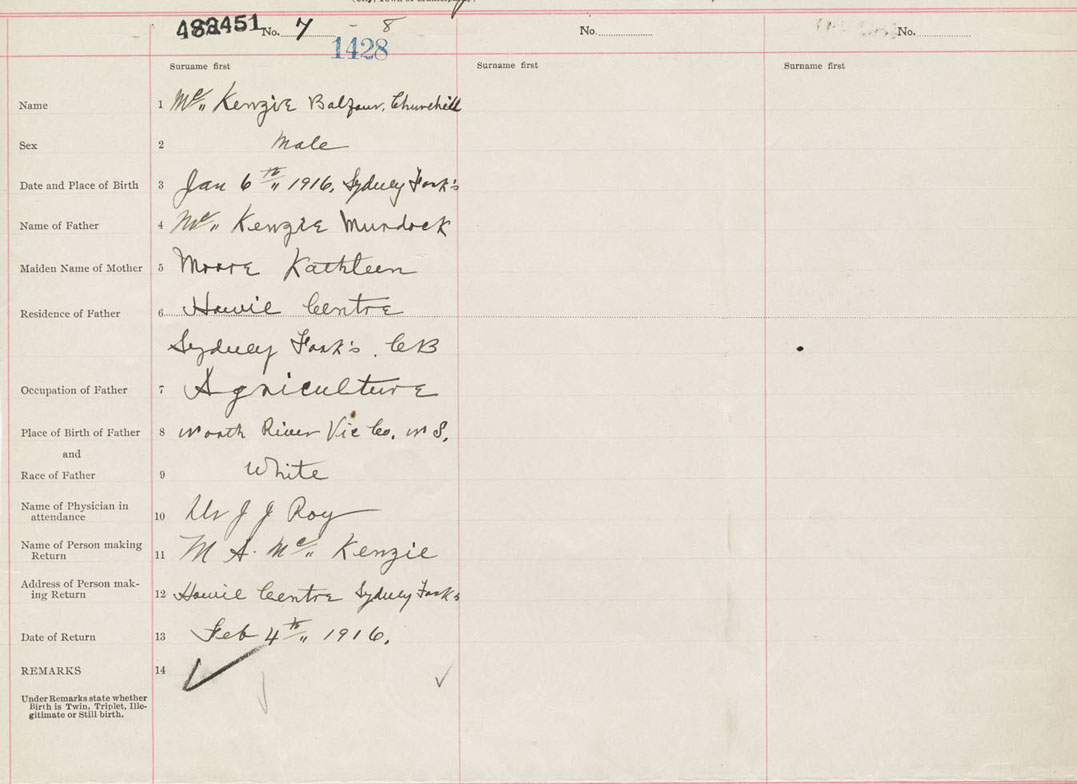 482451 No. 7 - 8 No. No.
1428
Surname first Surname first Surname first
Name 1 Mc Kenzie Balfour, Churchill
Sex 2 Male
Date and Place of Birth 3 Jan 6th 1916, Sydney Fork's
Name of Father 4 Mc Kenzie Murdock
Maiden Name of Mother 5 Moore Kathleen
Residence of Father 6 Howie Centre
Sydney Fork's. CB
Occupation of Father 7 Agriculture
Place of Birth of Father 8 North River Vic Co. N S.
and
Race of Father 9 White
Name of Physician in
attendance 10 Dr J J Roy
Name of Person making
Return 11 M A. Mc Kenzie
Address of Person mak-
ing Return 12 Howie Centre Sydney Fork's
Date of Return 13 Feb 4th 1916.
REMARKS 14
Under Remarks state whether
Birth is Twin, Triplet, Ille-
gitimate or Still birth.